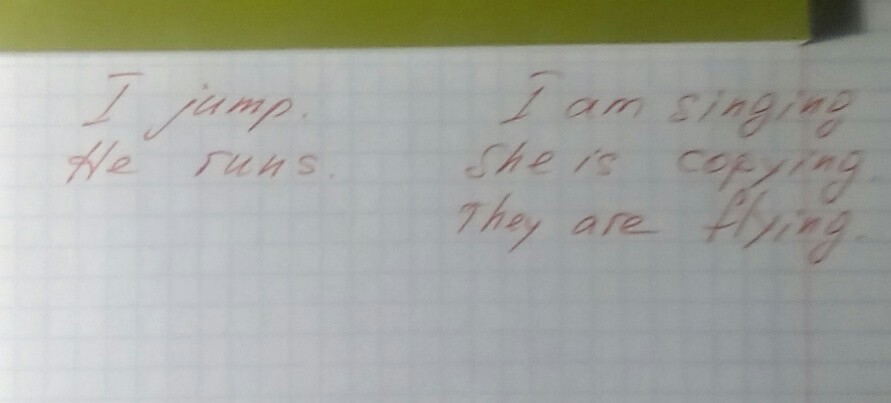 I jump.
He runs.
I am singing
She is copying.
They are flying.